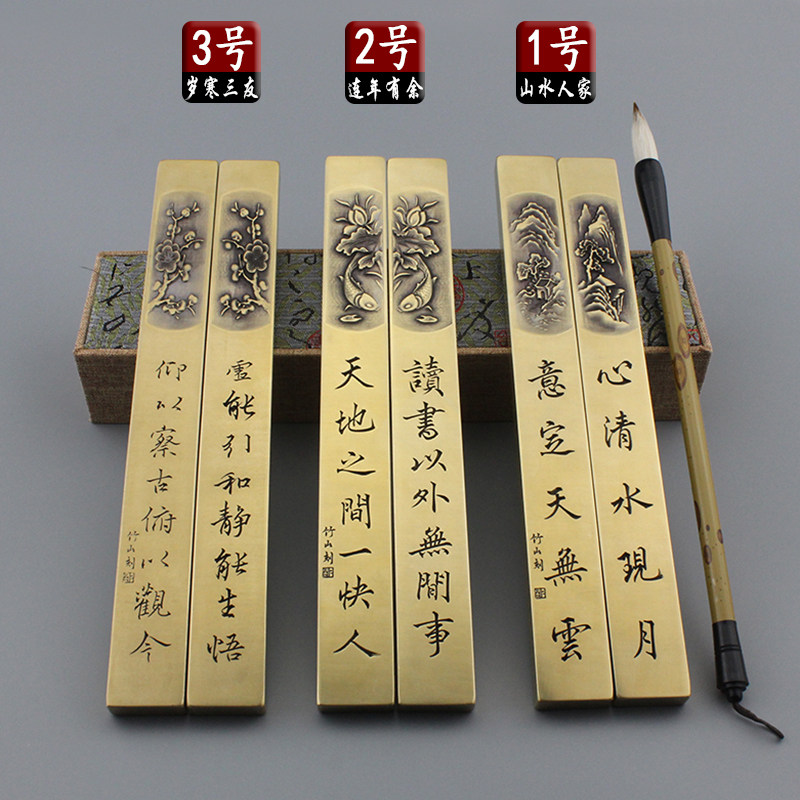 3号
岁寒三友
2号
连年有余
1号
山水人家
心清水現月
意定天無雲
竹山刻
讀書以外無閒事
天地之間一快人
竹山刻
虛能引和静能生悟
仰以察古俯以觀今
竹山刻